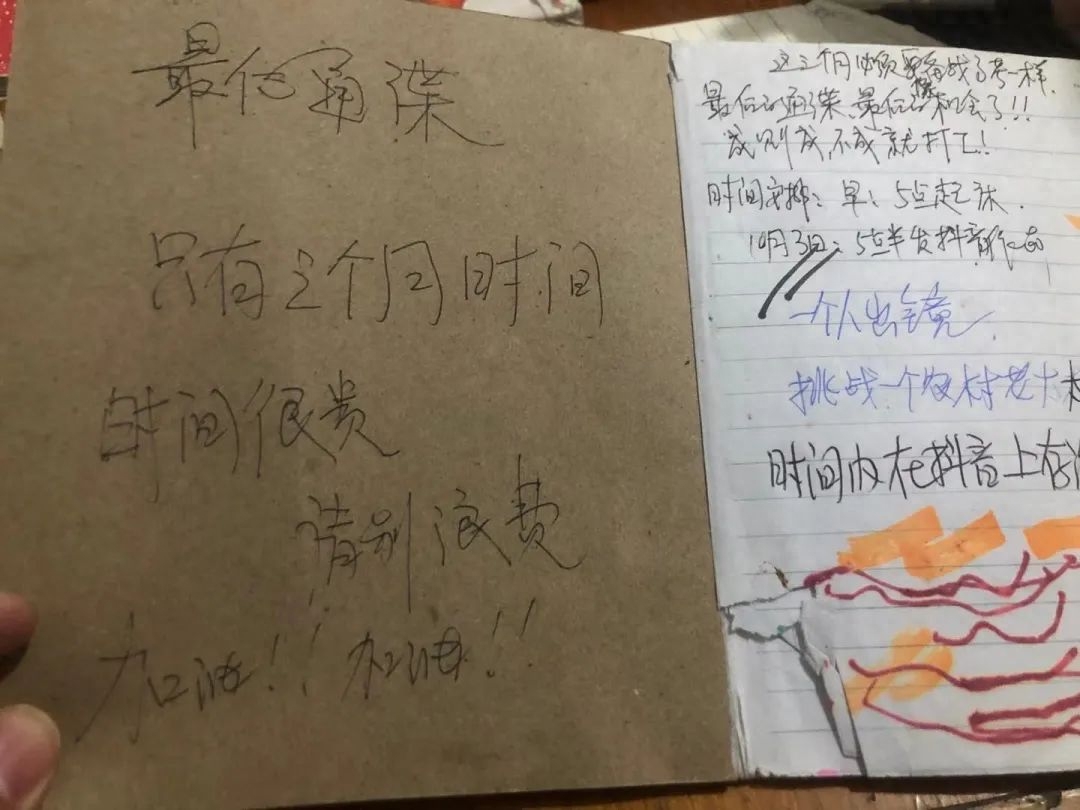 最后通牒
只有三个月时间
时间很贵
请别浪费
加油!! 加油!!
这三个月必须要像战了考一样.
最后的通牒、最后的机会了!!
成则成,不成就打工!
时间安排: 早: 5点起床.
10月3日: 5点半发抖音作品
一个人出镜.
挑战一个农村老
时间内在抖音上存